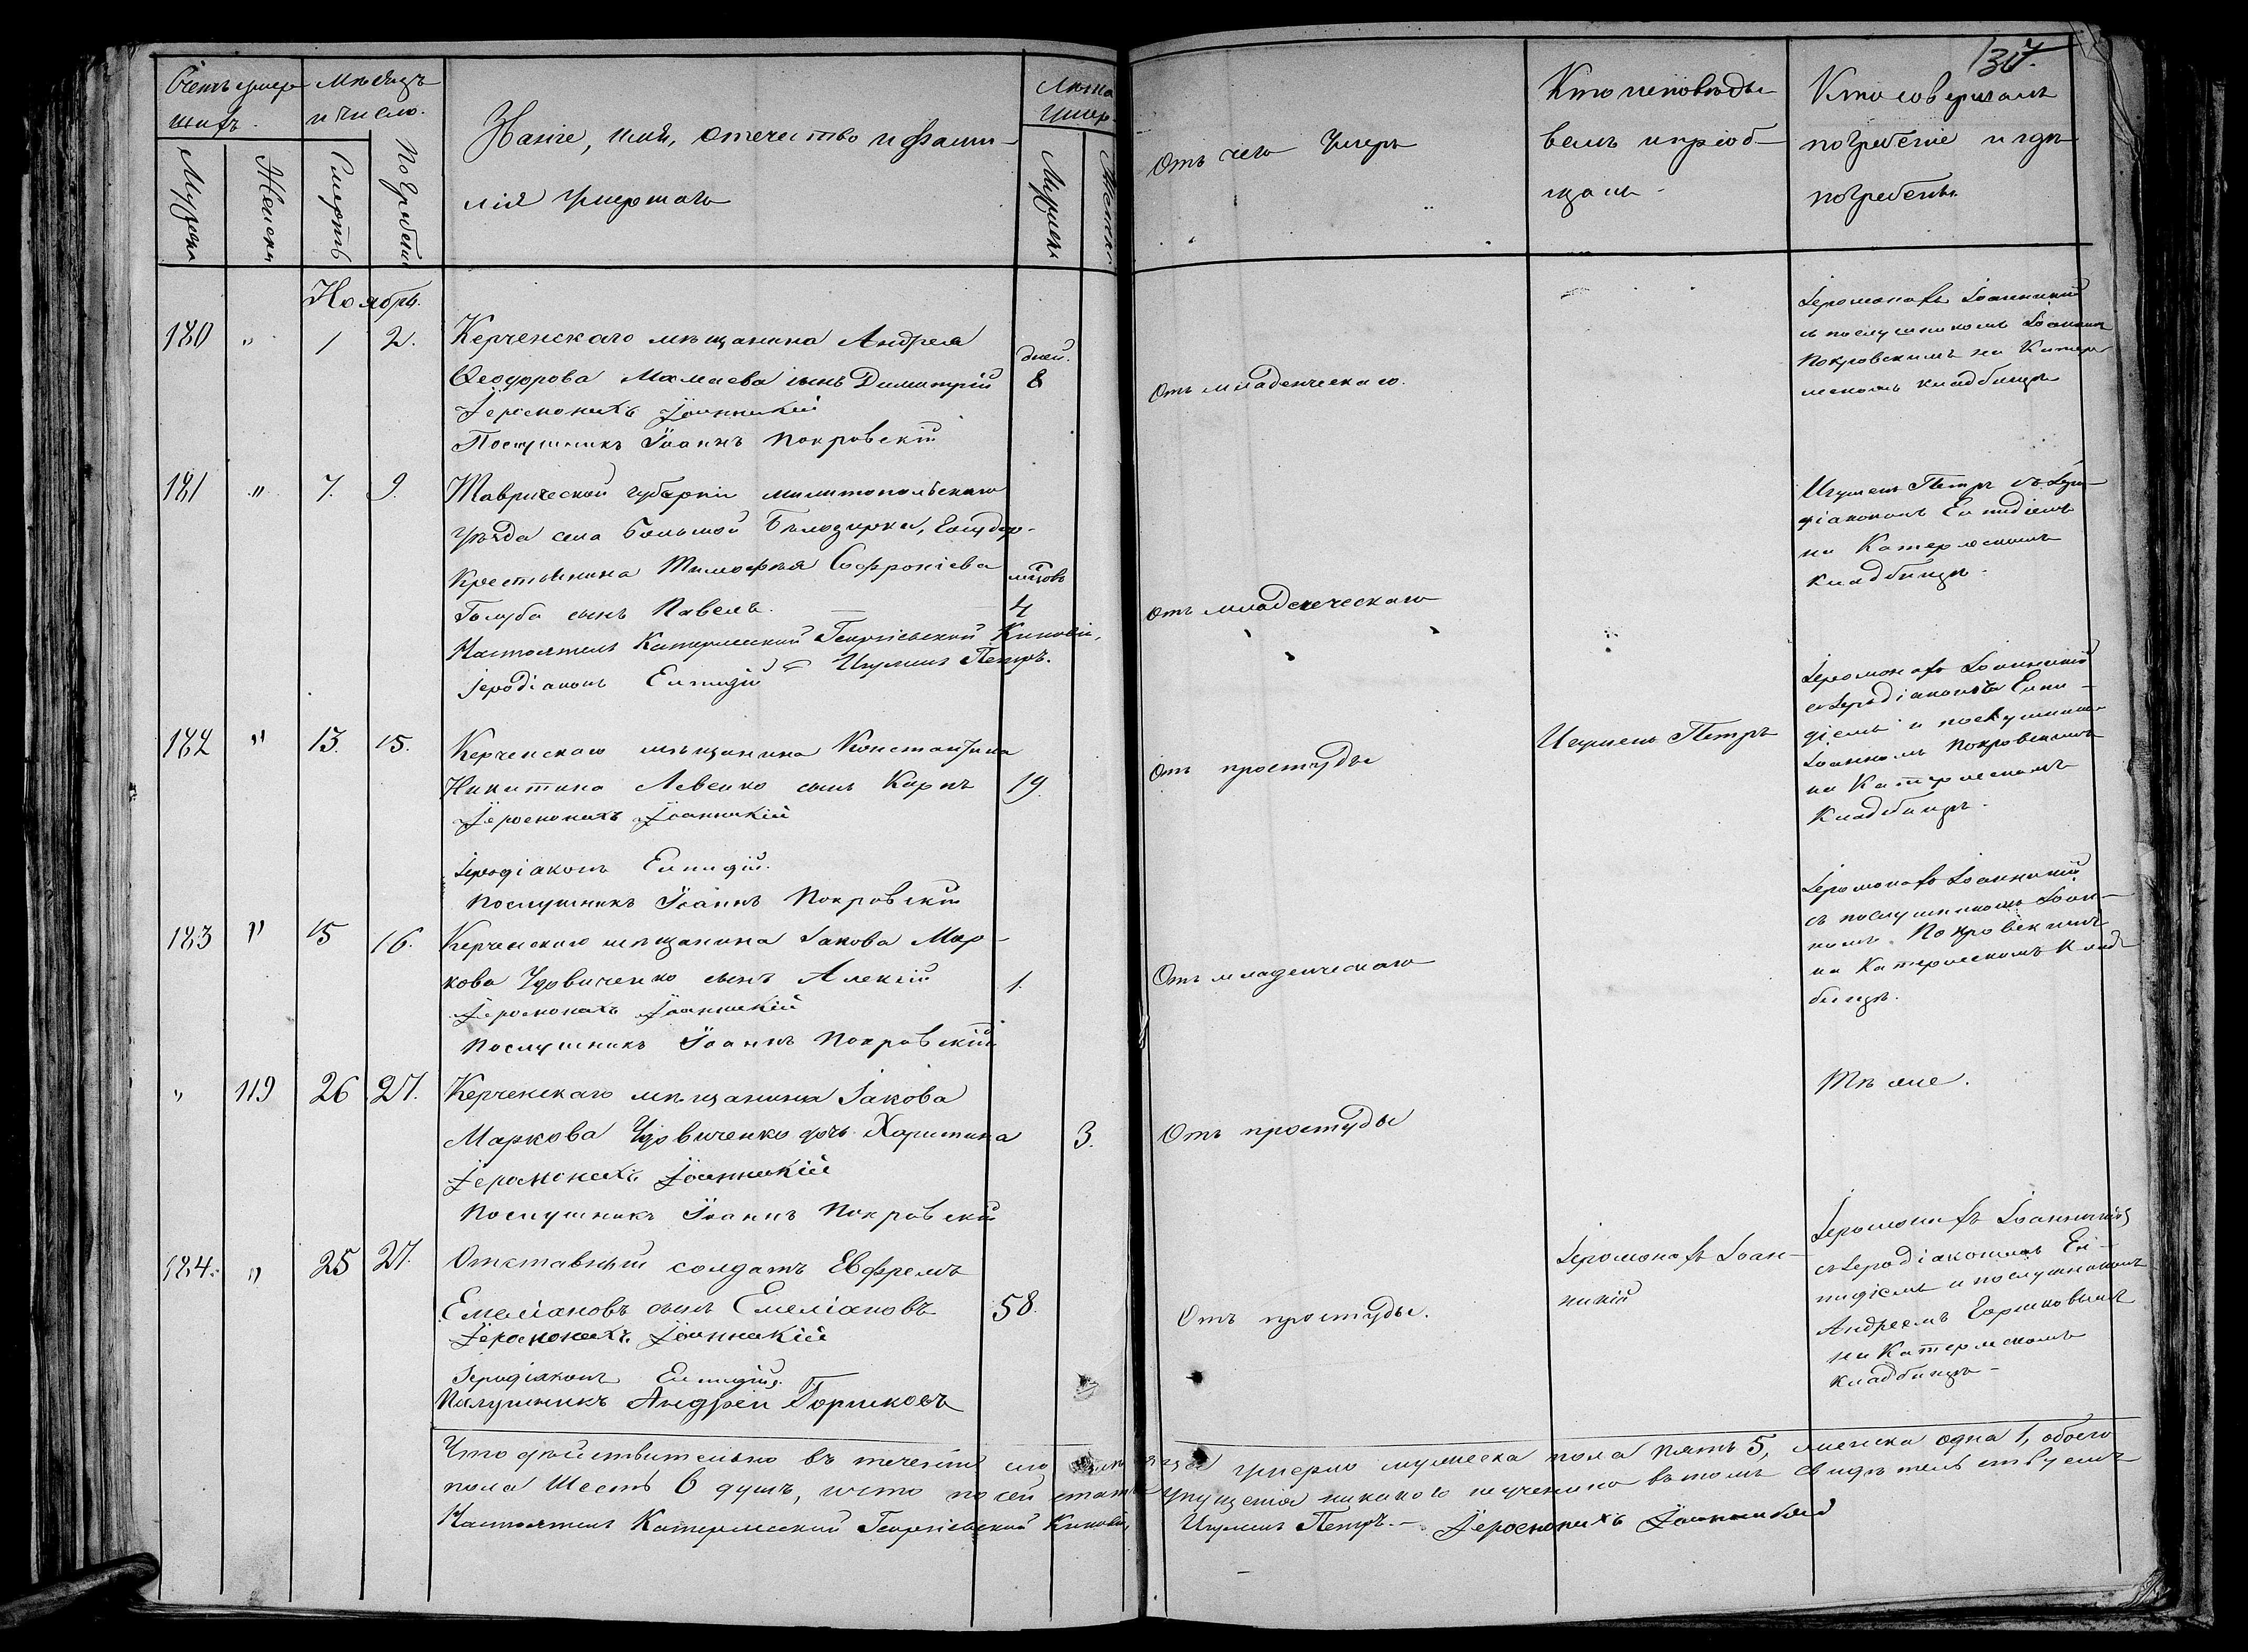 137.
Счетъ умер-
шихъ.
Мѣсяцъ
и число.
Мужеска
Женска
Смерть
Погребені
Званіе, имя, отечество и фами-
лія умершаго
Лѣта
умер.
Мужеск
Женска
Отъ чего умеръ
Кто исповѣды-
валъ и пріоб-
щалъ
Кто совершалъ
погребеніе и гдѣ
погребены.
Ноябрь.
180 " 1 2. Керченскаго мѣщанина Андрея
Ѳеодорова Мамаева сынъ Димитрій
дней.
8
Іеромонахъ Іоанникій
Послушникъ Іоаннъ Покровскій
Отъ младенческаго.
Іеромонахъ Іоанникій
съ послушникомъ Іоанномъ
Покровскимъ на Катер-
лескомъ кладбищѣ
181 " 7. 9. Таврической губерніи Милитопольскаго
уѣзда села Большой Бѣлозирки, Государ.
Крестьянина Тимофея Софроніева
Голуба сынъ Павелъ.
мѣсцовъ
4
Настоятель Катерлеской Георгіевской Киновіи,
Игуменъ Петръ.
Іеродіаконъ Елпидій
Отъ младенческаго
Игуменъ Петръ съ Іеро-
діакономъ Елпидіемъ
на Катерлескомъ
кладбищѣ.
182 " 13. 15. Керченскаго мѣщанина Константина
Никитина Левенко сынъ Карпъ 19.
Іеромонахъ Іоанникій
Іеродіаконъ Елпидій.
Послушникъ Іоаннъ Покровскій
Отъ простуды
Игуменъ Петръ
Іеромонахъ Іоанникій
съ Іеродіакономъ Елпи-
діемъ и послушникомъ
Іоанномъ Покровскимъ
на Катерлескомъ
Кладбищѣ.
183 " 15 16. Керченскаго мѣщанина Іакова Мар-
кова Удовиченко сынъ Алексій 1.
Іеромонахъ Іоанникій
Послушникъ Іоаннъ Покровскій
Отъ младенческаго
Іеромонахъ Іоанникій
съ послушникомъ Іоан-
номъ Покровскимъ
на Катерлескомъ Клад-
бищѣ.
" 119 26 27. Керченскаго мѣщанина Іакова
Маркова Удовиченко дочь Харитина 3.
Іеромонахъ Іоанникій
Послушникъ Іоаннъ Покровскій
Отъ простуды
Тѣ же.
184. " 25 27. Отставный солдатъ Евфремъ
Емеліановъ сынъ Емеліановъ 58.
Іеромонахъ Іоанникій
Іеродіаконъ Елпидій.
Палушникъ Андрей Горшковъ
Отъ простуды.
Іеромонахъ Іоан-
никій
Іеромонахъ Іоанникій
съ Іеродіакономъ Ел-
пидіемъ и послушникомъ
Андреемъ Горшковымъ
на Катерлескомъ
кладбищѣ
Что дѣйствительно въ теченіи сего мѣсяца умерло мужеска пола пять 5, женска одна 1, обоего
пола Шесть 6 душъ, и что по сей статьѣ упущенія никакого не учинено въ томъ свидѣтельствуемъ
Настоятель Катерлеской Георгіевской Киновіи, Игуменъ Петръ. - Іеромонахъ Іоанникій